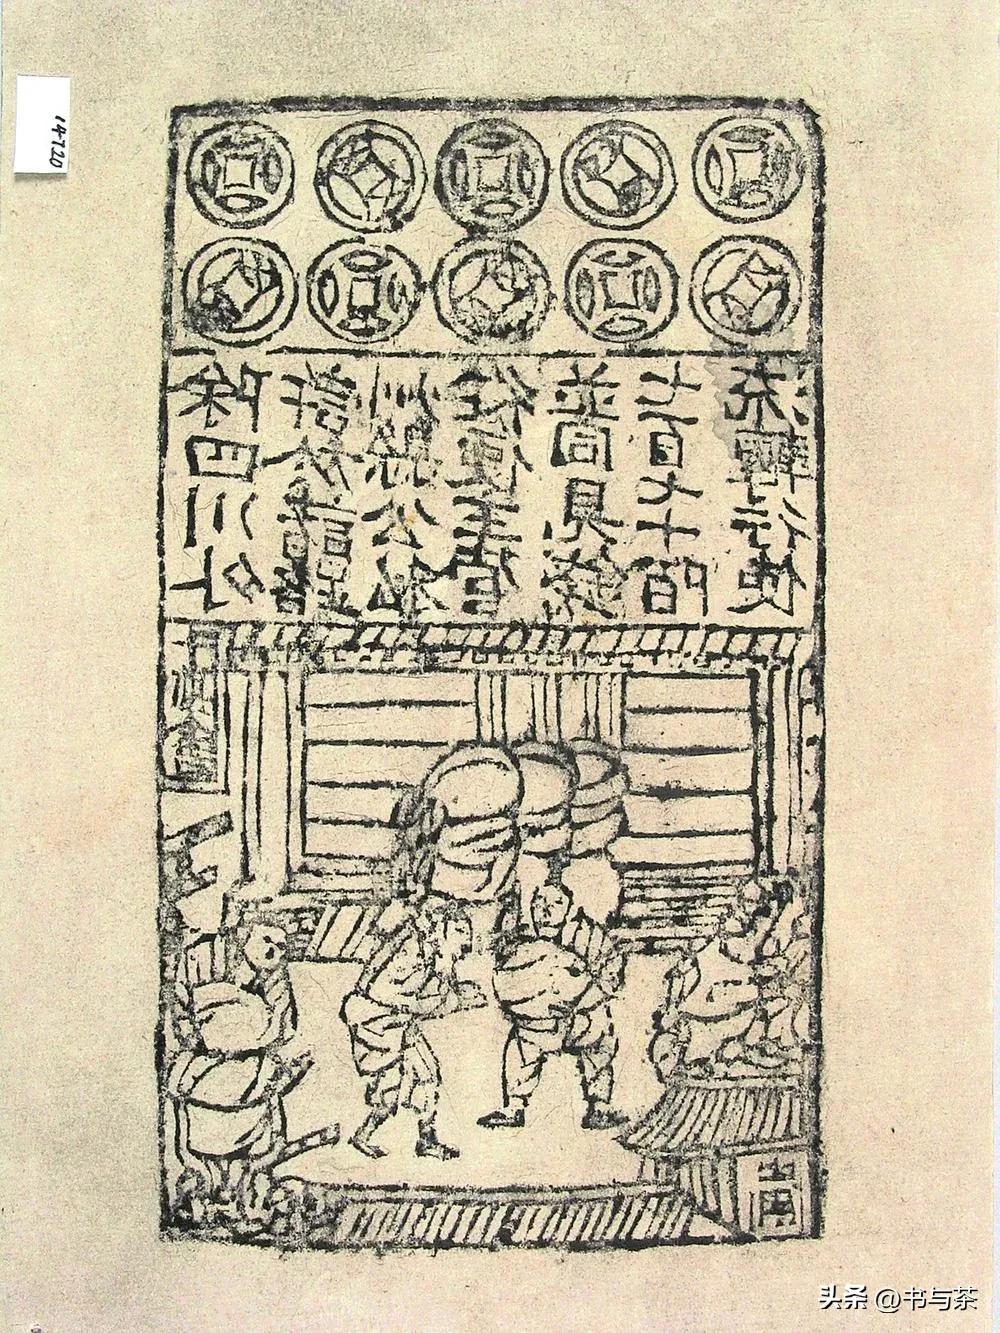 除四川外
許於諸路
州縣公私
從便主管
並同見錢
七百七十陌
流轉行使
14-720
头条 @书与茶